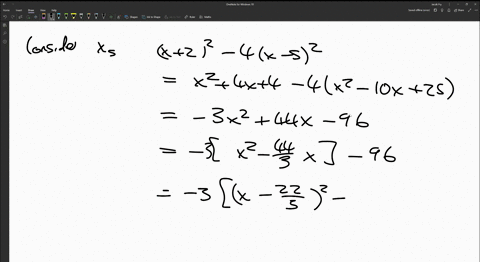 Consider x₅ (x+2)² - 4(x-5)²
= x² + 4x + 4 - 4(x² - 10x + 25)
= -3x² + 44x - 96
= -3[x² - 44/3 x] - 96
= -3[(x - 22/5)² -